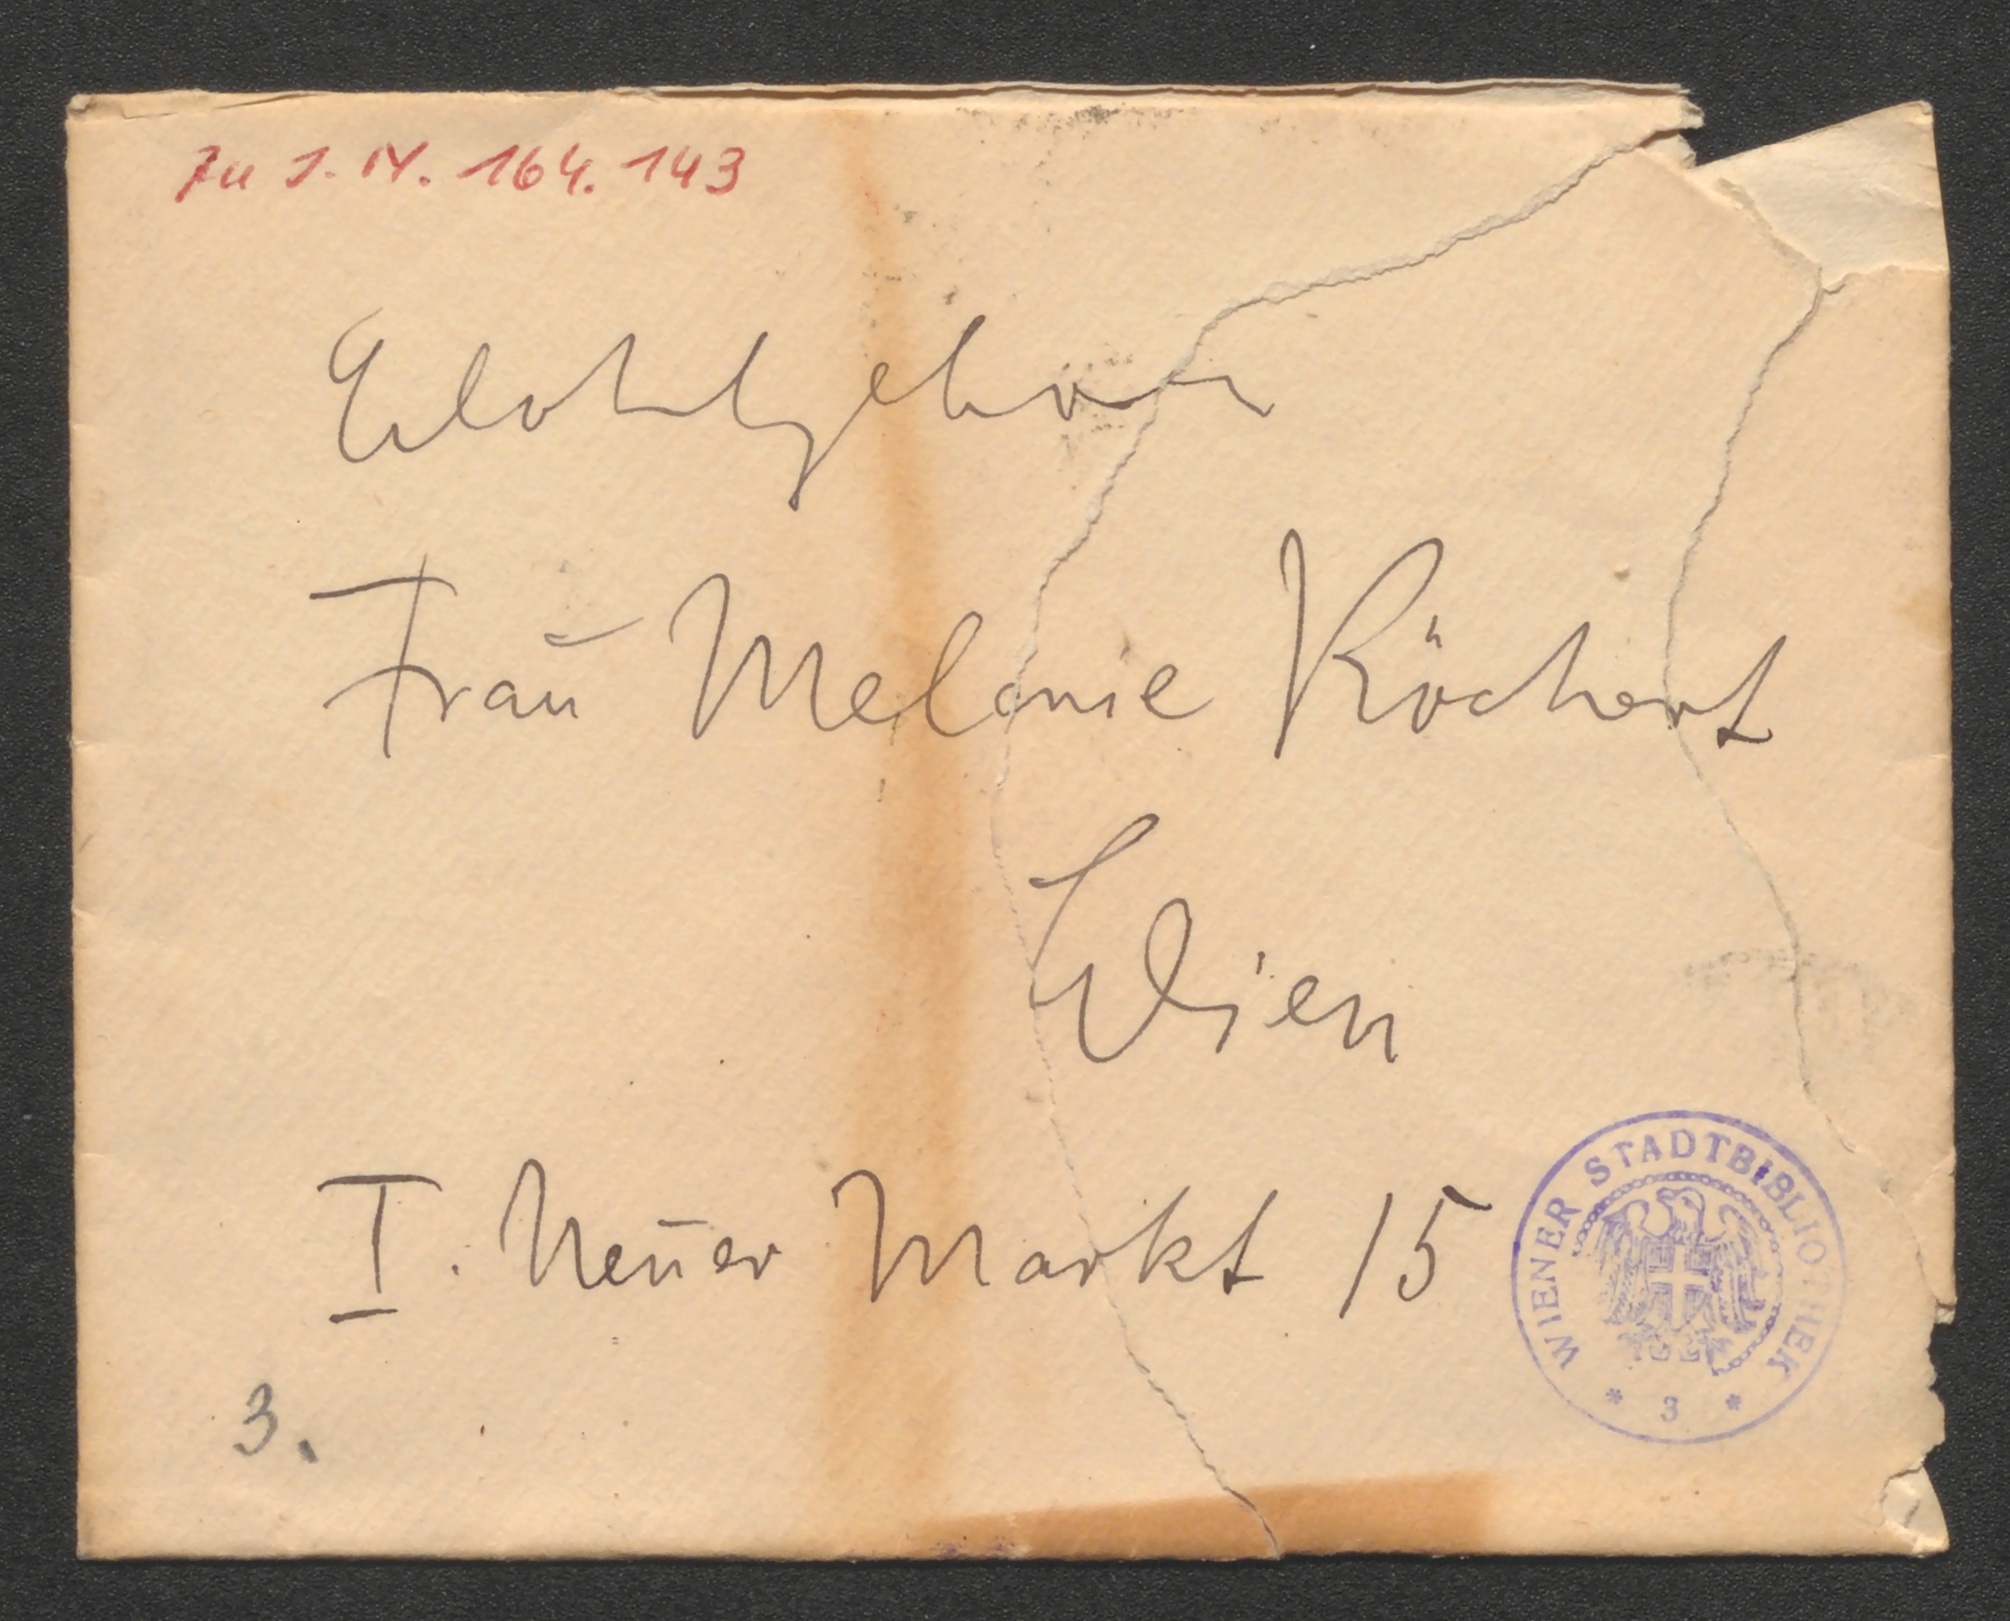 Zu J. N. 164.143
Wohlgeboren
Frau Melanie Köchert
Wien
I. Neuer Markt 15
WIENER STADTBIBLIOTHEK
* 3 *
3.